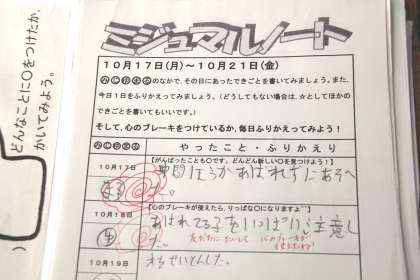 どんなことに〇をつけたか、
かいてみよう。
ミジュマルノート
10月17日(月)~10月21日(金)
のなかで、その日にあったできごとを書いてみましょう。また、
今日1日をふりかえってみましょう。(どうしてもない場合は、☆としてほかの
できごとを書いてもいいです。)
そして、心のブレーキをつけているか、毎日ふりかえってみよう!
やったこと・ふりかえり
10月17日
【がんばったことも〇です。どんどん新しい〇を見つけよう!】
ほうかあばれずにあそべ
た。
10月18日
【心のブレーキが使えたら、りっぱな〇になりますよ
あばれてる子をいっぱい注意し
た。
友だちに
心のブレーキが
10月19日
せいとんした。